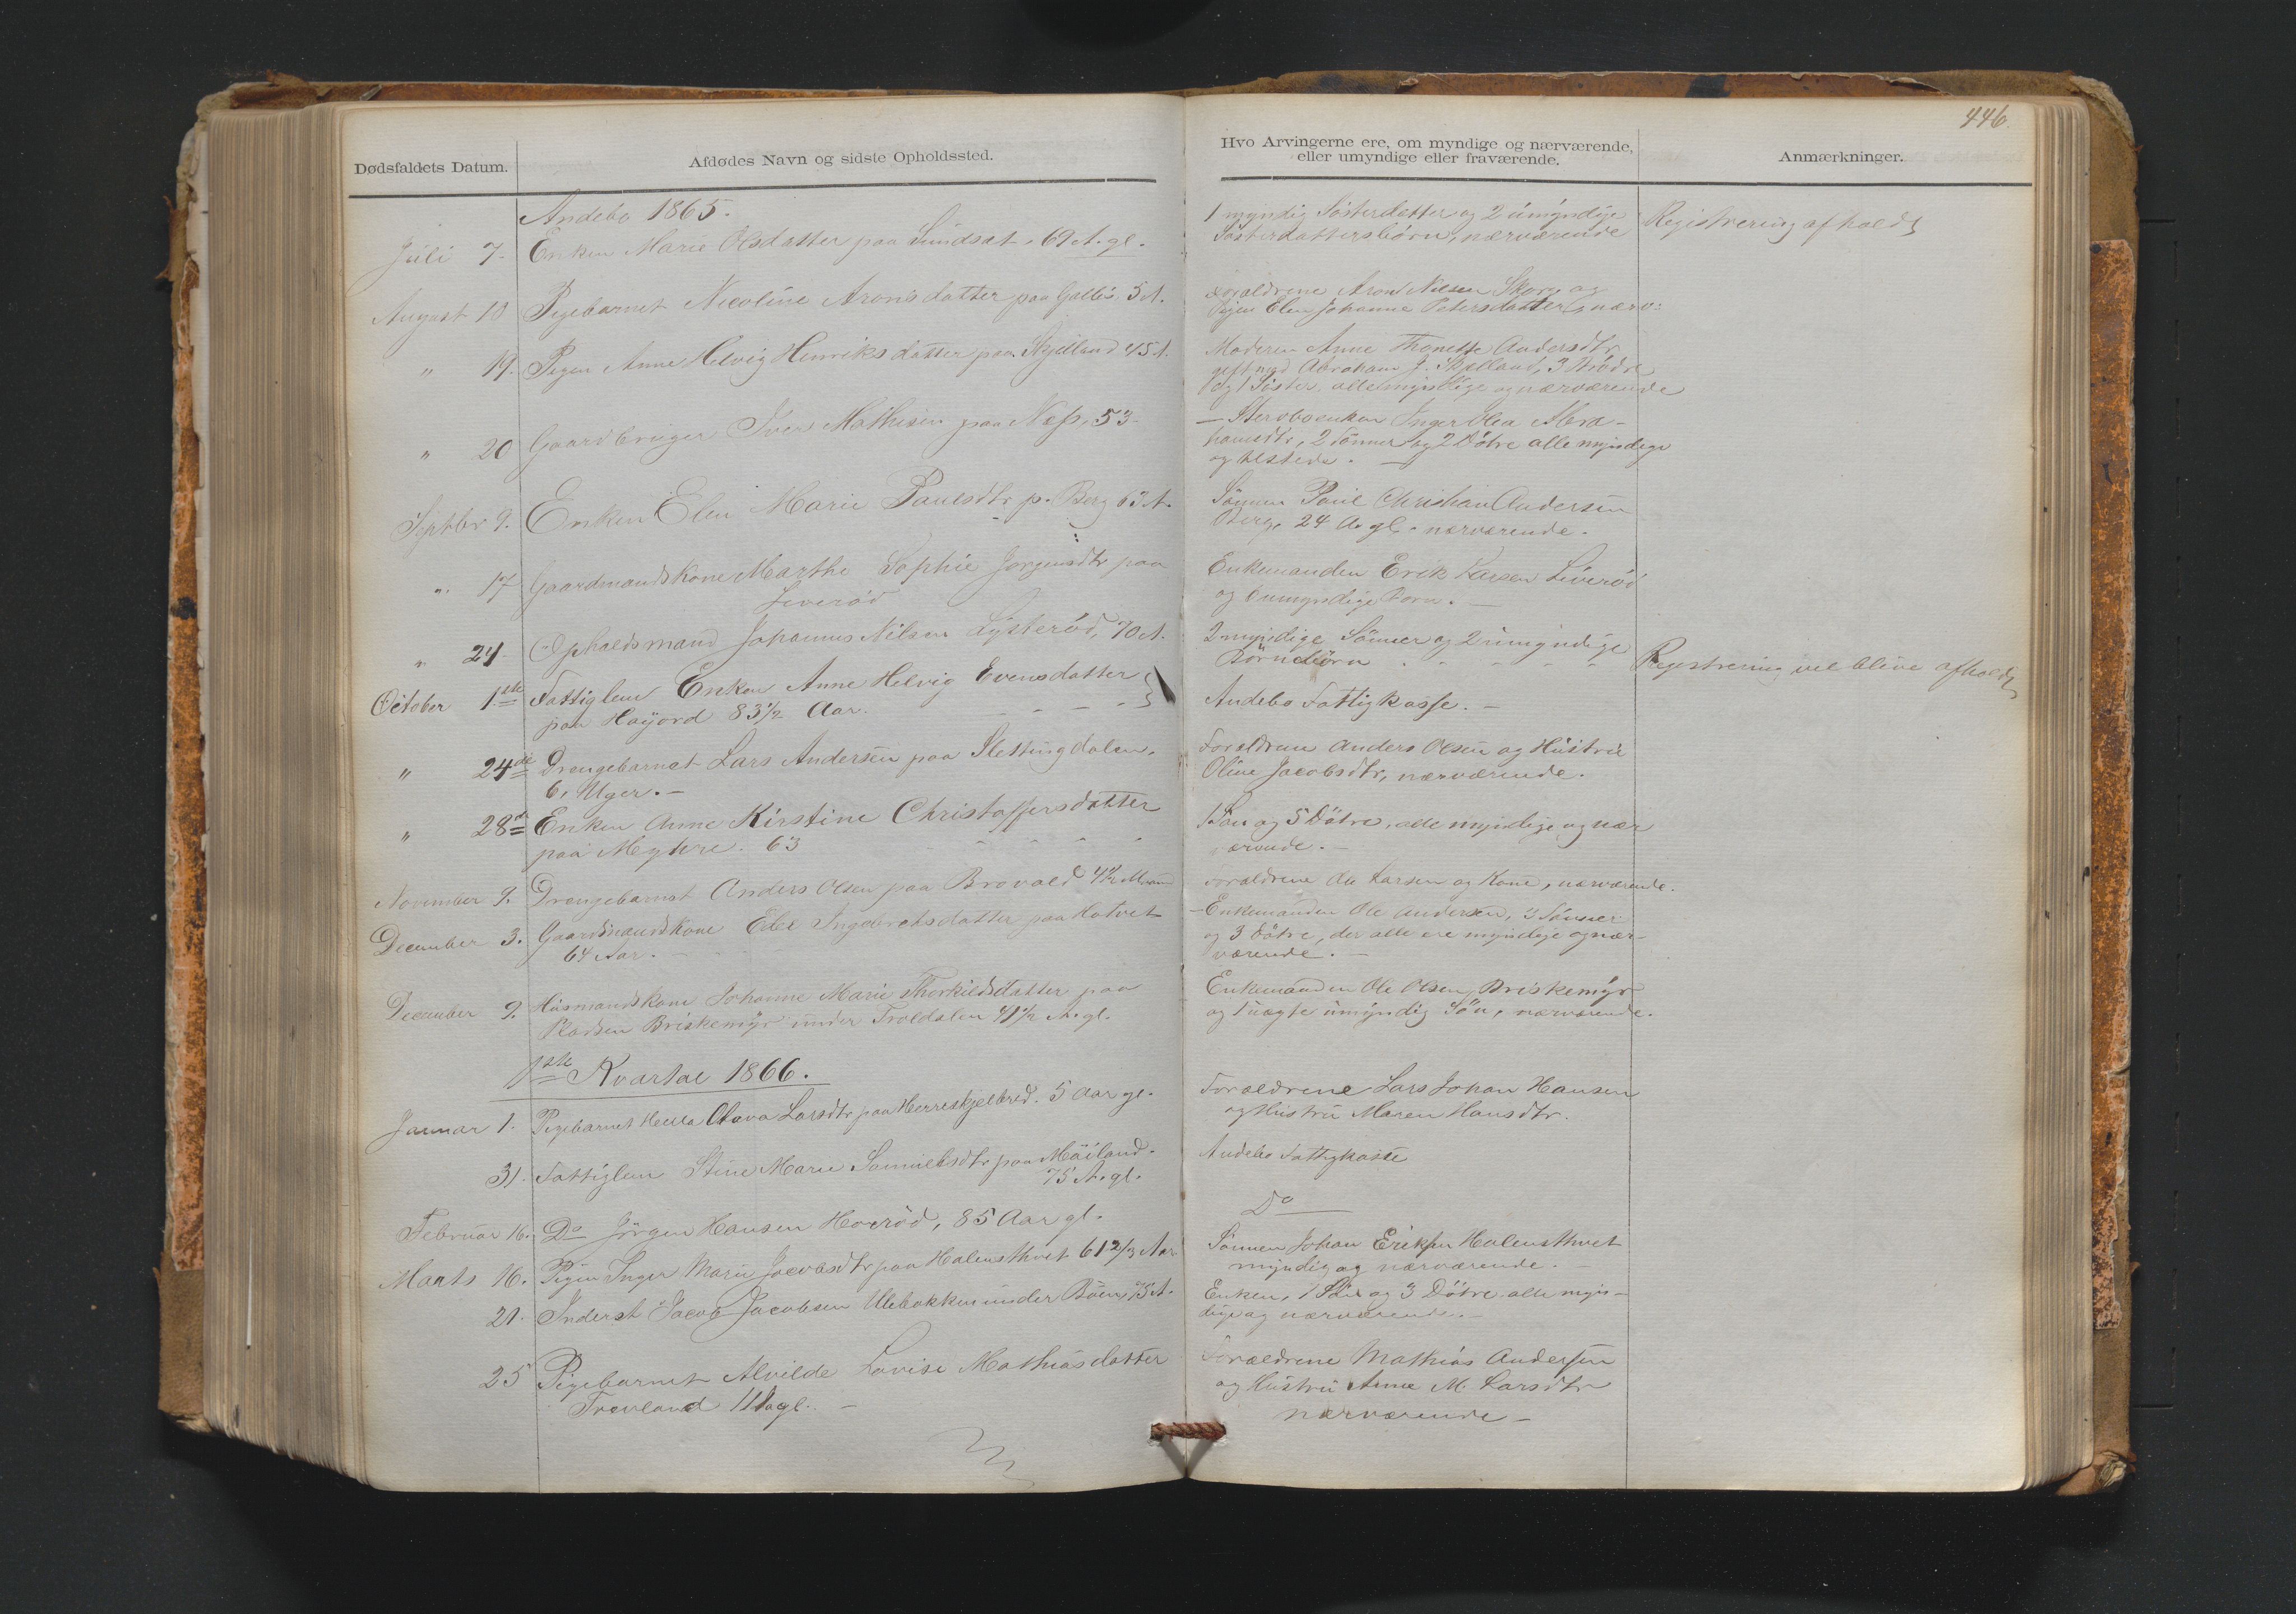 446
Dødsfaldets Datum.
Afdødes Navn og sidste Opholdssted.
Hvo Arvingerne ere, om myndige og nærværende,
eller umyndige eller fraværende.
Anmærkninger.
Andebo 1865.
Juli 7. Enken Marie Olsdatter paa Sundsæt. 69 A. gl.
1 myndig Søsterdatter og 2 umyndige
Søsterdattersbørn, nærværende
Registrering afholdt
August 10 Pigebarnet Nicoline Aronsdatter paa 5 A.
Forældrene Aron Nilsen Skorge og
Pigen Elen Johanne Petersdatter, nærv:
" 19. Pigen Anne Helvig Henriksdatter paa Skjelland 45 A.
Moderen Anne Andersdtr
gift med Abraham J. Skjelland, 3 Brødre
og 1 Søster, alle myndige og nærværende
" 20 Gaardbruger Iver Mathisen paa Næss, 53
– Stervboenken Inger Olea Abra-
hamsdtr, 2 Sønner og 2 Døtre alle myndige
og tilstede. –
Septbr 9. Enken Elen Marie Paulsdtr p. Berg 63 A.
Sønnen Paul Christian Andersen
Berg, 24 A. gl. nærværende.
". 17 Gaardmandskone Marthe Sophie Jørgensdtr paa
Liverød
Enkemanden Erik Larsen Liverød
og umyndige Børn. –
" 24. Opholdsmand Johannes Nilsen Lysterød, 70 A.
2 myndige Sønner og 2 umyndige
Børnebørn
Registrering vil blive afholdt
October 1ste Fattiglem Enken Anne Helvig Evensdatter
paa Høyjord 83 1/2 Aar.
Andebo Fattigkasse. –
" 24de Drengebarnet Lars Andersen paa Slettingdalen.
6, Uger. –
Forældrene Anders Olsen og Hustrue
Oline Jacobsdtr, nærværende.
" 28de Enken Anne Kirstine Christoffersdatter
paa Møyhre. 63
1 Søn og 5 Døtre, alle myndige og nær
værende. –
November 9. Drengebarnet Anders Olsen paa Brovold 4 1/2 Maaned
Forældrene Ole Larsen og Kone, nærværende.
December 3. Gaardmandskone Edel Ingebretsdatter paa Hotvet
64 Aar.
– Enkemanden Ole Andersen, 3 Sønner
og 3 Døtre, der alle ere myndige og nær-
værende. –
December 9. Husmandskone Johanne Marie Thorkildsdatter paa
Pladsen Briskemyr under Troldalen 41 1/2 A. gl.
Enkemanden Ole Olsen, Briskemyr
og 1 uægte umyndig Søn, nærværende.
1ste Kvartal 1866.
Januar 1. Pigebarnet Olava Larsdtr paa Herreskjelbred. 5 Aar gl.
Forældrene Lars Johan Hansen
og Hustru Maren Hansdtr.
31. Fattiglem Stine Marie Samuelsdtr paa Møiland.
75 A. gl.
Andebo Fattigkasse
Februar 16. Do Jörgen Hansen Hoerød, 85 Aar gl.
Do
Marts 16. Pigen Inger Marie Jacobsdtr paa Halensthvet 61 2/3 Aar
Sønnen Johan Eriksen Halensthvet
myndig og nærværende. –
21. Inderst Jacob Jacobsen Ulebakken under Bøen, 75 A.
Enken, 1 Søn og 3 Døtre alle myn-
dige og nærværende. –
25 Pigebarnet Alvilde Lovise Mathiasdatter
Trevland 11 gl. –
Forældrene Mathias Andersen
og Hustru Anne M. Larsdtr
nærværende –